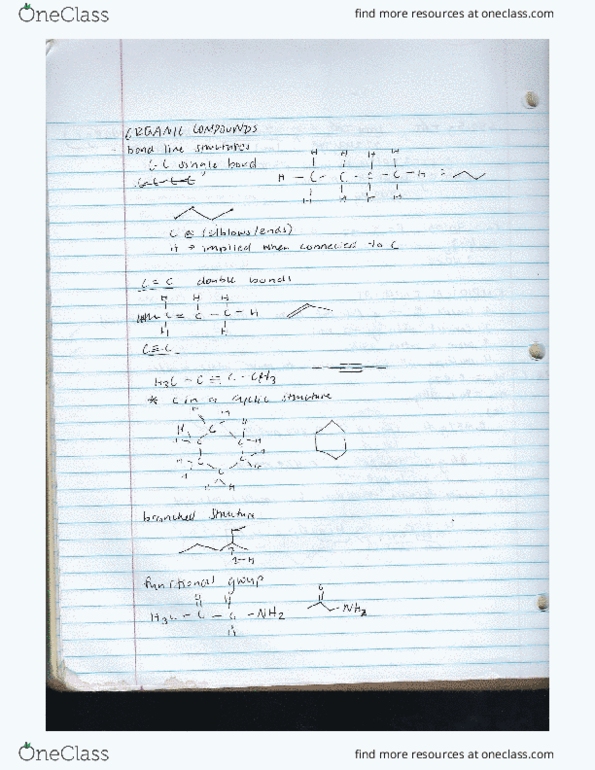 OneClass
find more resources at oneclass.com
ORGANIC COMPOUNDS
bond line structures
C-C single bond
H H H H
H - C - C - C - C - H =
H H H H
C @ (elbows/ends)
H → implied when connected to C
C = C double bonds
H H H
C = C - C - H
H H
C≡C
H3C - C ≡ C - CH3
* C in a cyclic structure
branched structure
1-H
functional group
O H
H3C - C - C - NH2
H
O
-NH2
OneClass
find more resources at oneclass.com